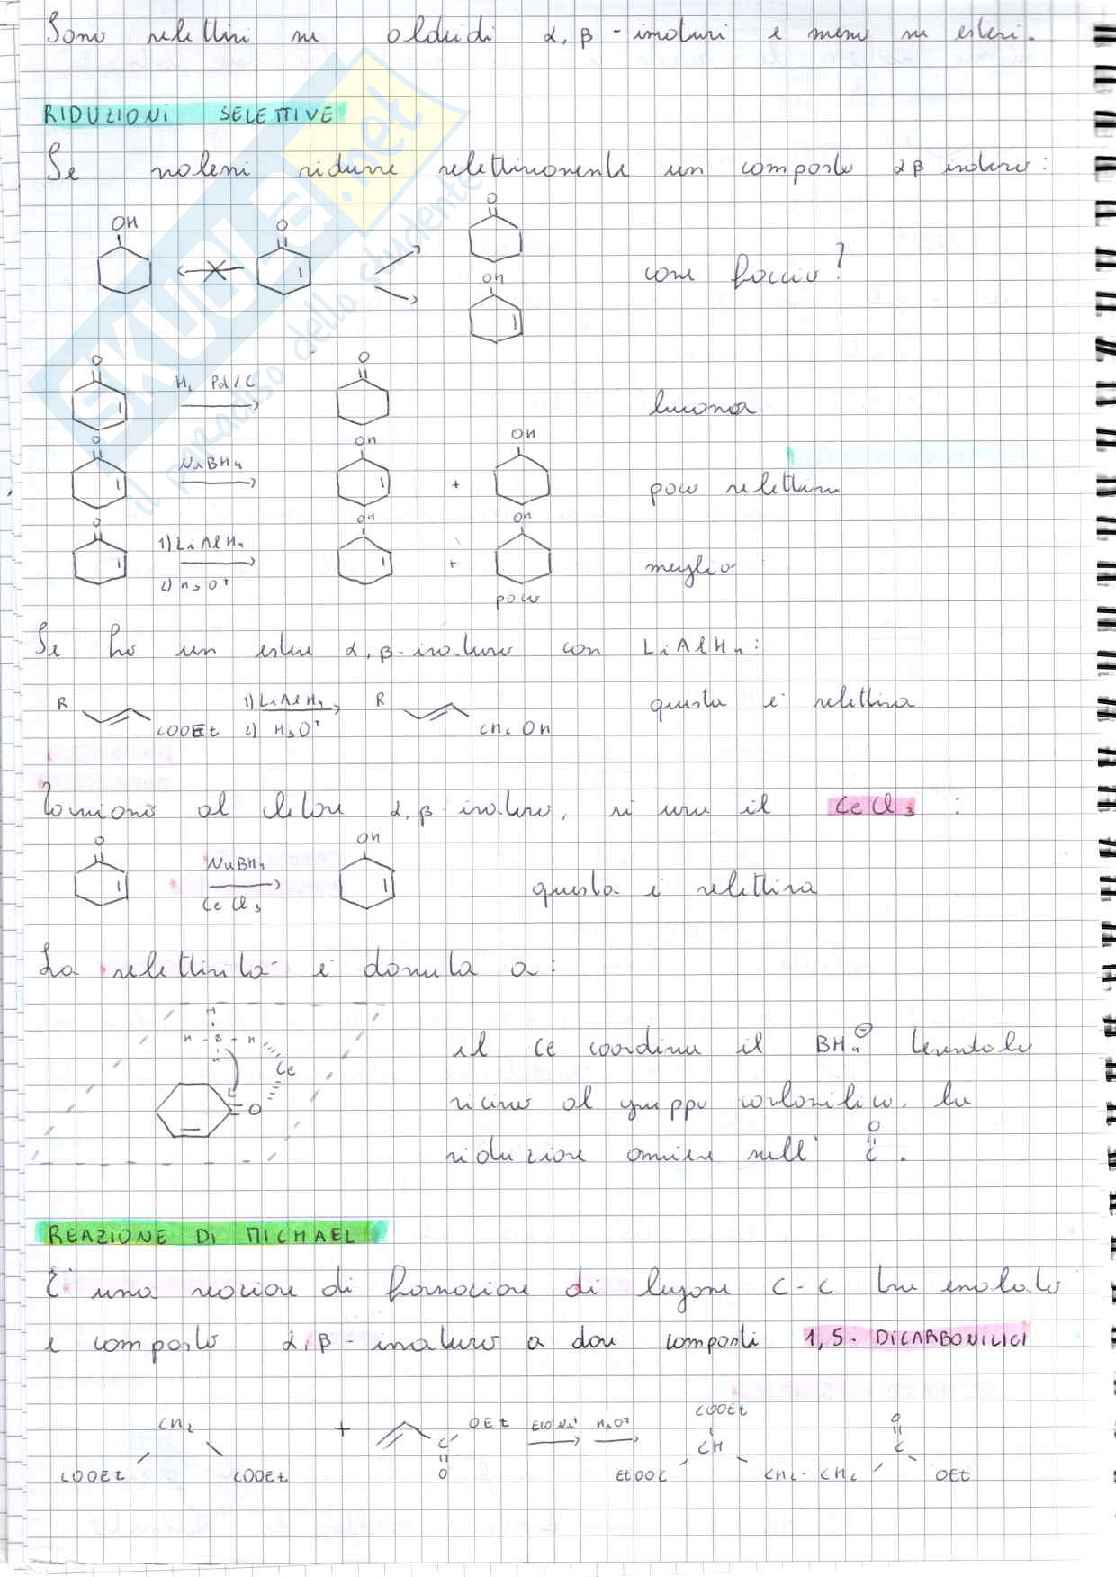 Sono selettivi su aldeidi α,β-insaturi e meno su esteri.
RIDUZIONI SELETTIVE
Se volessi ridurre selettivamente un composto αβ insaturo:
OH O O
OH
come faccio?
O H₂ Pd/C O buona
O NaBH₄ OH + OH poco selettiva
O 1) LiAlH₄ OH + OH meglio
2) H₃O⁺ poco
Se ho un estere α,β-insaturo con LiAlH₄:
R COOEt 1) LiAlH₄ R CH₂OH questa è selettiva
2) H₃O⁺
Torniamo al chetone α,β-insaturo, si usa il CeCl₃ :
O NaBH₄ OH questa è selettiva
CeCl₃
La selettività è dovuta a:
H
H - B - H
H Ce
O
il Ce coordina il BH₄⊖ tenendolo
vicino al gruppo carbonilico. La
riduzione avviene sull' C=O.
REAZIONE DI MICHAEL
È una reazione di formazione di legame C-C tra enolato
e composto α,β-insaturo a dare composti 1,5-DICARBONILICI
CH₂ + C OEt EtONa H₃O⁺ COOEt CH O C
COOEt COOEt O EtOOC CH₂-CH₂ OEt
SKUOLA.net
il paradiso dello studente